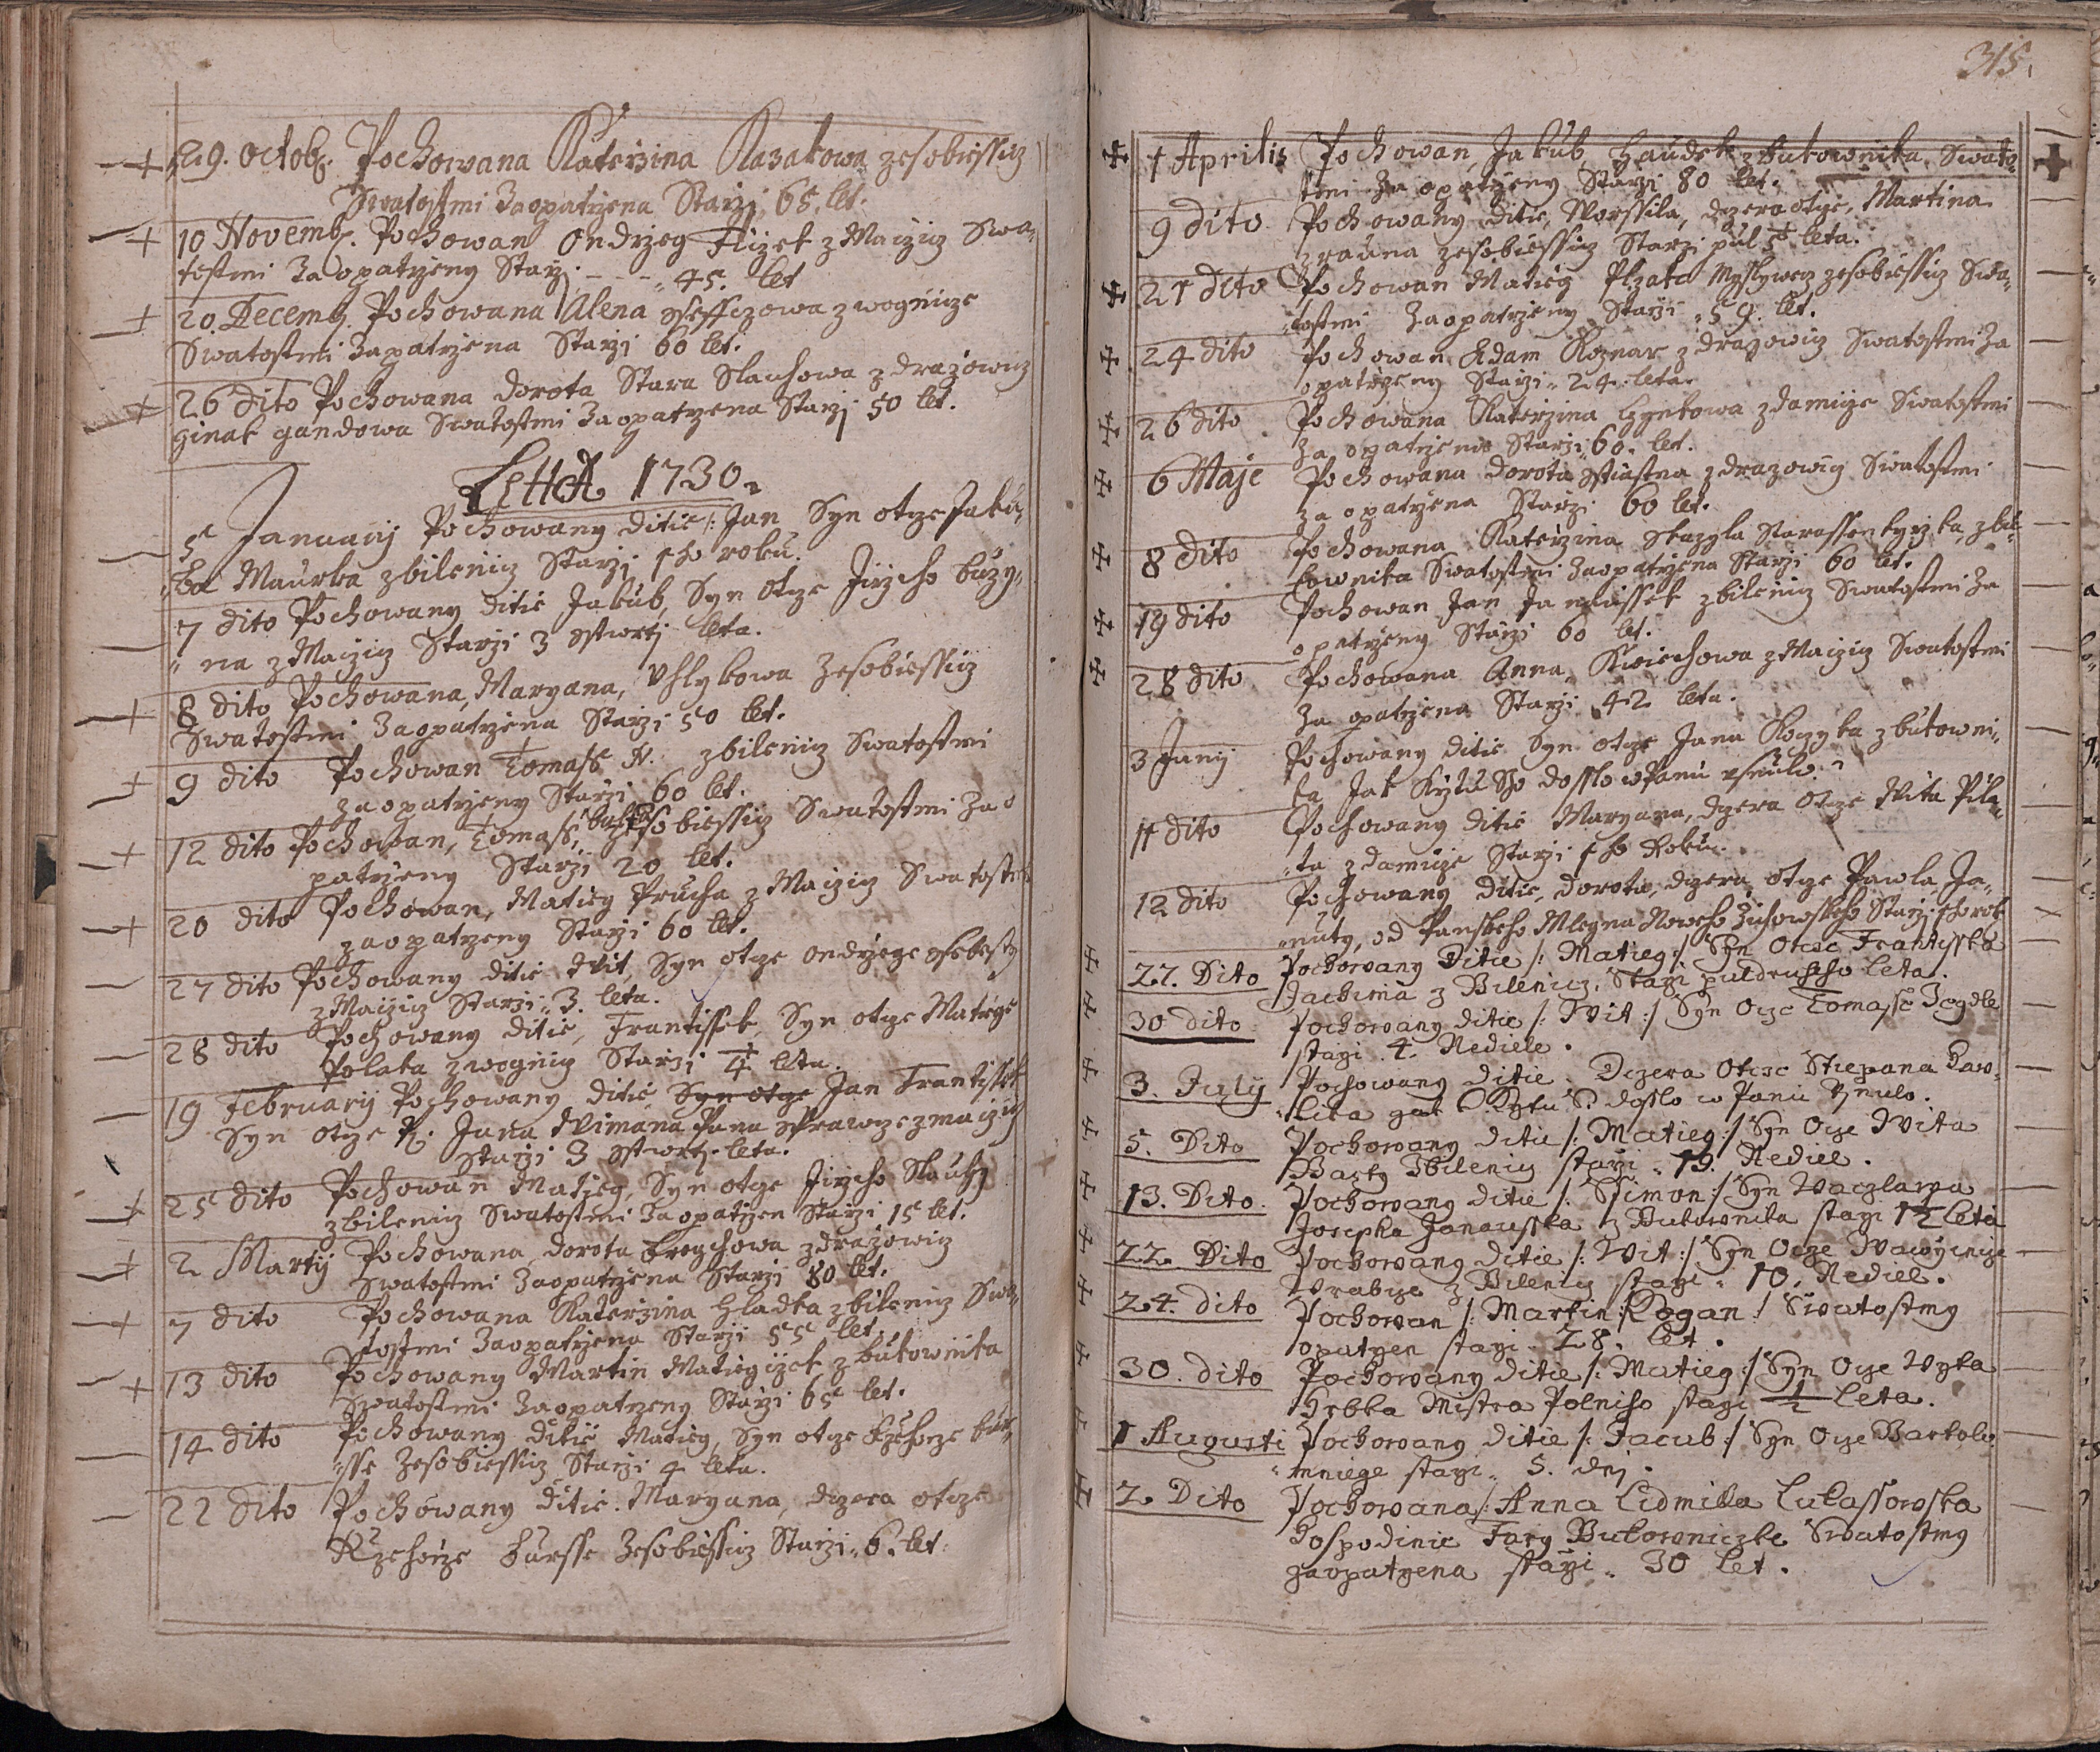 29. octob. Pochowana Katerzina Kazakowa zesobiessicz
Swatostmi Zaopatrzena Starzi 65. let.
10 Novemb. Pochowan Ondrzeg Flizek z Maiziz Swa„
tostmi Zaopatrzeny Starzi „ 45. let
20 Decemb. Pochowana Alena z wognicze
Swatostmi Zapatrzena Starzi 60 let.
26 dito Pochowana dorota Stara Slauhowa z drazowicz
ginak gandowa Swatostmi Zaopatrzena Starzi 50 let.
LettA 1730.
5 Januarij Pochowany ditie /: Jan Syn otcze Jaku„
ba Maurka z bilenicz Starzi 1ho roku.
7 dito Pochowany ditie Jakub, Syn Otcze Jirzeho buzy„
„na z Maiziz Starzi 3 cztwrti leta.
8 dito Pochowana, Maryana, Uhlykowa Zesobiessicz
Swatostmi Zaopatrzena Starzi 50 let.
9 dito Pochowan Tomass N. z bilenicz Swatostmi
zaopatrzeny Starzi 60 let.
12 dito Pochowan, Tomass, zesobiessicz Swatostmi Zao
patrzeny Starzi 20 let.
20 dito Pochowan, Matieg Prucha z Maiziz Swatostmi
zaopatrzeny Starzi 60 let.
27 dito Pochowany ditie Wit, Syn otcze ondrzege
z Maiziz Starzi „ 3. leta.
28 dito Pochowany ditie, Frantissek, Syn otcze Matiege
Polaka z wognicz Starzi 1/4 leta.
19 February Pochowany ditie, Syn otcze Jan Frantissek
Syn otcze P: Jana Wimana Pana Sprawcze z maiziz
Starzi 3 cztwrti leta.
25 dito Pochowan Matieg, Syn otcze Jirzeho Slauhy
z bilenicz Swatostmi Zaopatrzen Starzi 15 let.
2 Martij Pochowana dorota bregchowa z drazowicz
Swatostmi Zaopatrzena Starzi 80 let.
7 dito Pochowana Katerzina Hladka z bilenicz Swa„
tostmi Zaopatrzena Starzi 55 let.
13 dito Pochowany Martin Matiegiczek z bukownika
Swatostmi Zaopatrzeny Starzi 65 let.
14 dito Pochowany ditie Matieg, Syn otcze Rzehorze bur„
„sse Zesobiessicz Starzi 4 leta.
22 dito Pochowany ditie. Maryana, dczera otcze
Rzehorze bursse Zesobiessicz Starzi „ 6. let.
315.
1 Aprilis Pochowan, Jakub, Haudek z Bukownika, Swato„
stmi Zaopatrzeny Starzi 80 let.
9 dito Pochowany ditie, Worssila, dczera otcze, Martina
zradna zesobiessicz Starzi pul leta.
21 dito Pochowan Matieg Plzak Myslywecz zesobiessicz Swa„
„tostmi Zaopatrzeny Starzi „ 59. let.
24 dito Pochowan Adam Koznar z drazowicz Swatostmi Za
opatrzeny Starzi „ 24. leta.
26 dito Pochowana Katerzina Hynkowa z damicze Swatostmi
Zaopatrzena Starzi 60. let.
6 Maje Pochowana dorota z drazowicz Swatostmi
zaopatrzena Starzi 60 let.
8 dito Pochowana Katerzina z bu„
kownika Swatostmi Zaopatrzena Starzi 60 let.
19 dito Pochowan Jan z bilenicz Swatostmi Za
opatrzeny Starzi 60 let.
28 dito Pochowana Anna, Kwiechowa z Maiziz Swatostmi
Zaopatrzena Starzi 42 leta.
3 Junij Pochowany ditie Syn otcze Jana Koczyka z bukowni„
ka Jak Krztu Sho dosslo w Panu usnulo.
11 dito Pochowany ditie Maryana, dczera Otcze Wita Pila„
„ta z damicze Starzi 1ho Roku.
12 dito Pochowany ditie, dorota, dczera otcze Pawla, Ja„
„nuty, od Panskeho Mlegna Noweho Zichowskeho Starzi 1ho rok
27. Dito Pochowany Ditie /: Matieg :/ Syn Otcze Frantisska
Jachima z Bilenicz, Starzi puldruheho leta.
30 dito Pochowany ditie /: Wit :/ Syn Ocze Tomasse Jegdle
starzi. 4. Nediele.
3. Julij Pochowany ditie. Dczera Otcze Stiepana Paw„
„lika gak k Krztu S. dosslo w Panu usnulo.
5. Dito Pochowany ditie /: Matieg :/ Syn Ocze Wita
Barty Zbilenicz starzi „ 19. Nediel.
13. Dito Pochowany ditie /: Ssimon :/ Syn Waczlawa
Josepha Janausska z Bukownika starzi 1 1/2 leta
22. Dito Pochowany ditie /: Wit :/ Syn Ocze Wawrzincze
Wrabcze z Bilenicz starzi „ 10. Nediel.
24. dito Pochowan /: Martin Kogan :/ Swatostmy
opatrzen starzi „ 28. let.
30. dito Pochowany ditie /: Matieg :/ Syn Ocze Wyka
Hrbka Mistra Polniho starzi 1/2 leta.
1 Augusti Pochowany ditie /: Jacub :/ Syn Ocze Bartolo
„mniege starzi „ 5. dnj.
2. Dito Pochowana /: Anna Lidmilla Lukassowska
Hospodinie Fary Bukowniczke Swatostmy
zaopatrzena starzi „ 30 let.